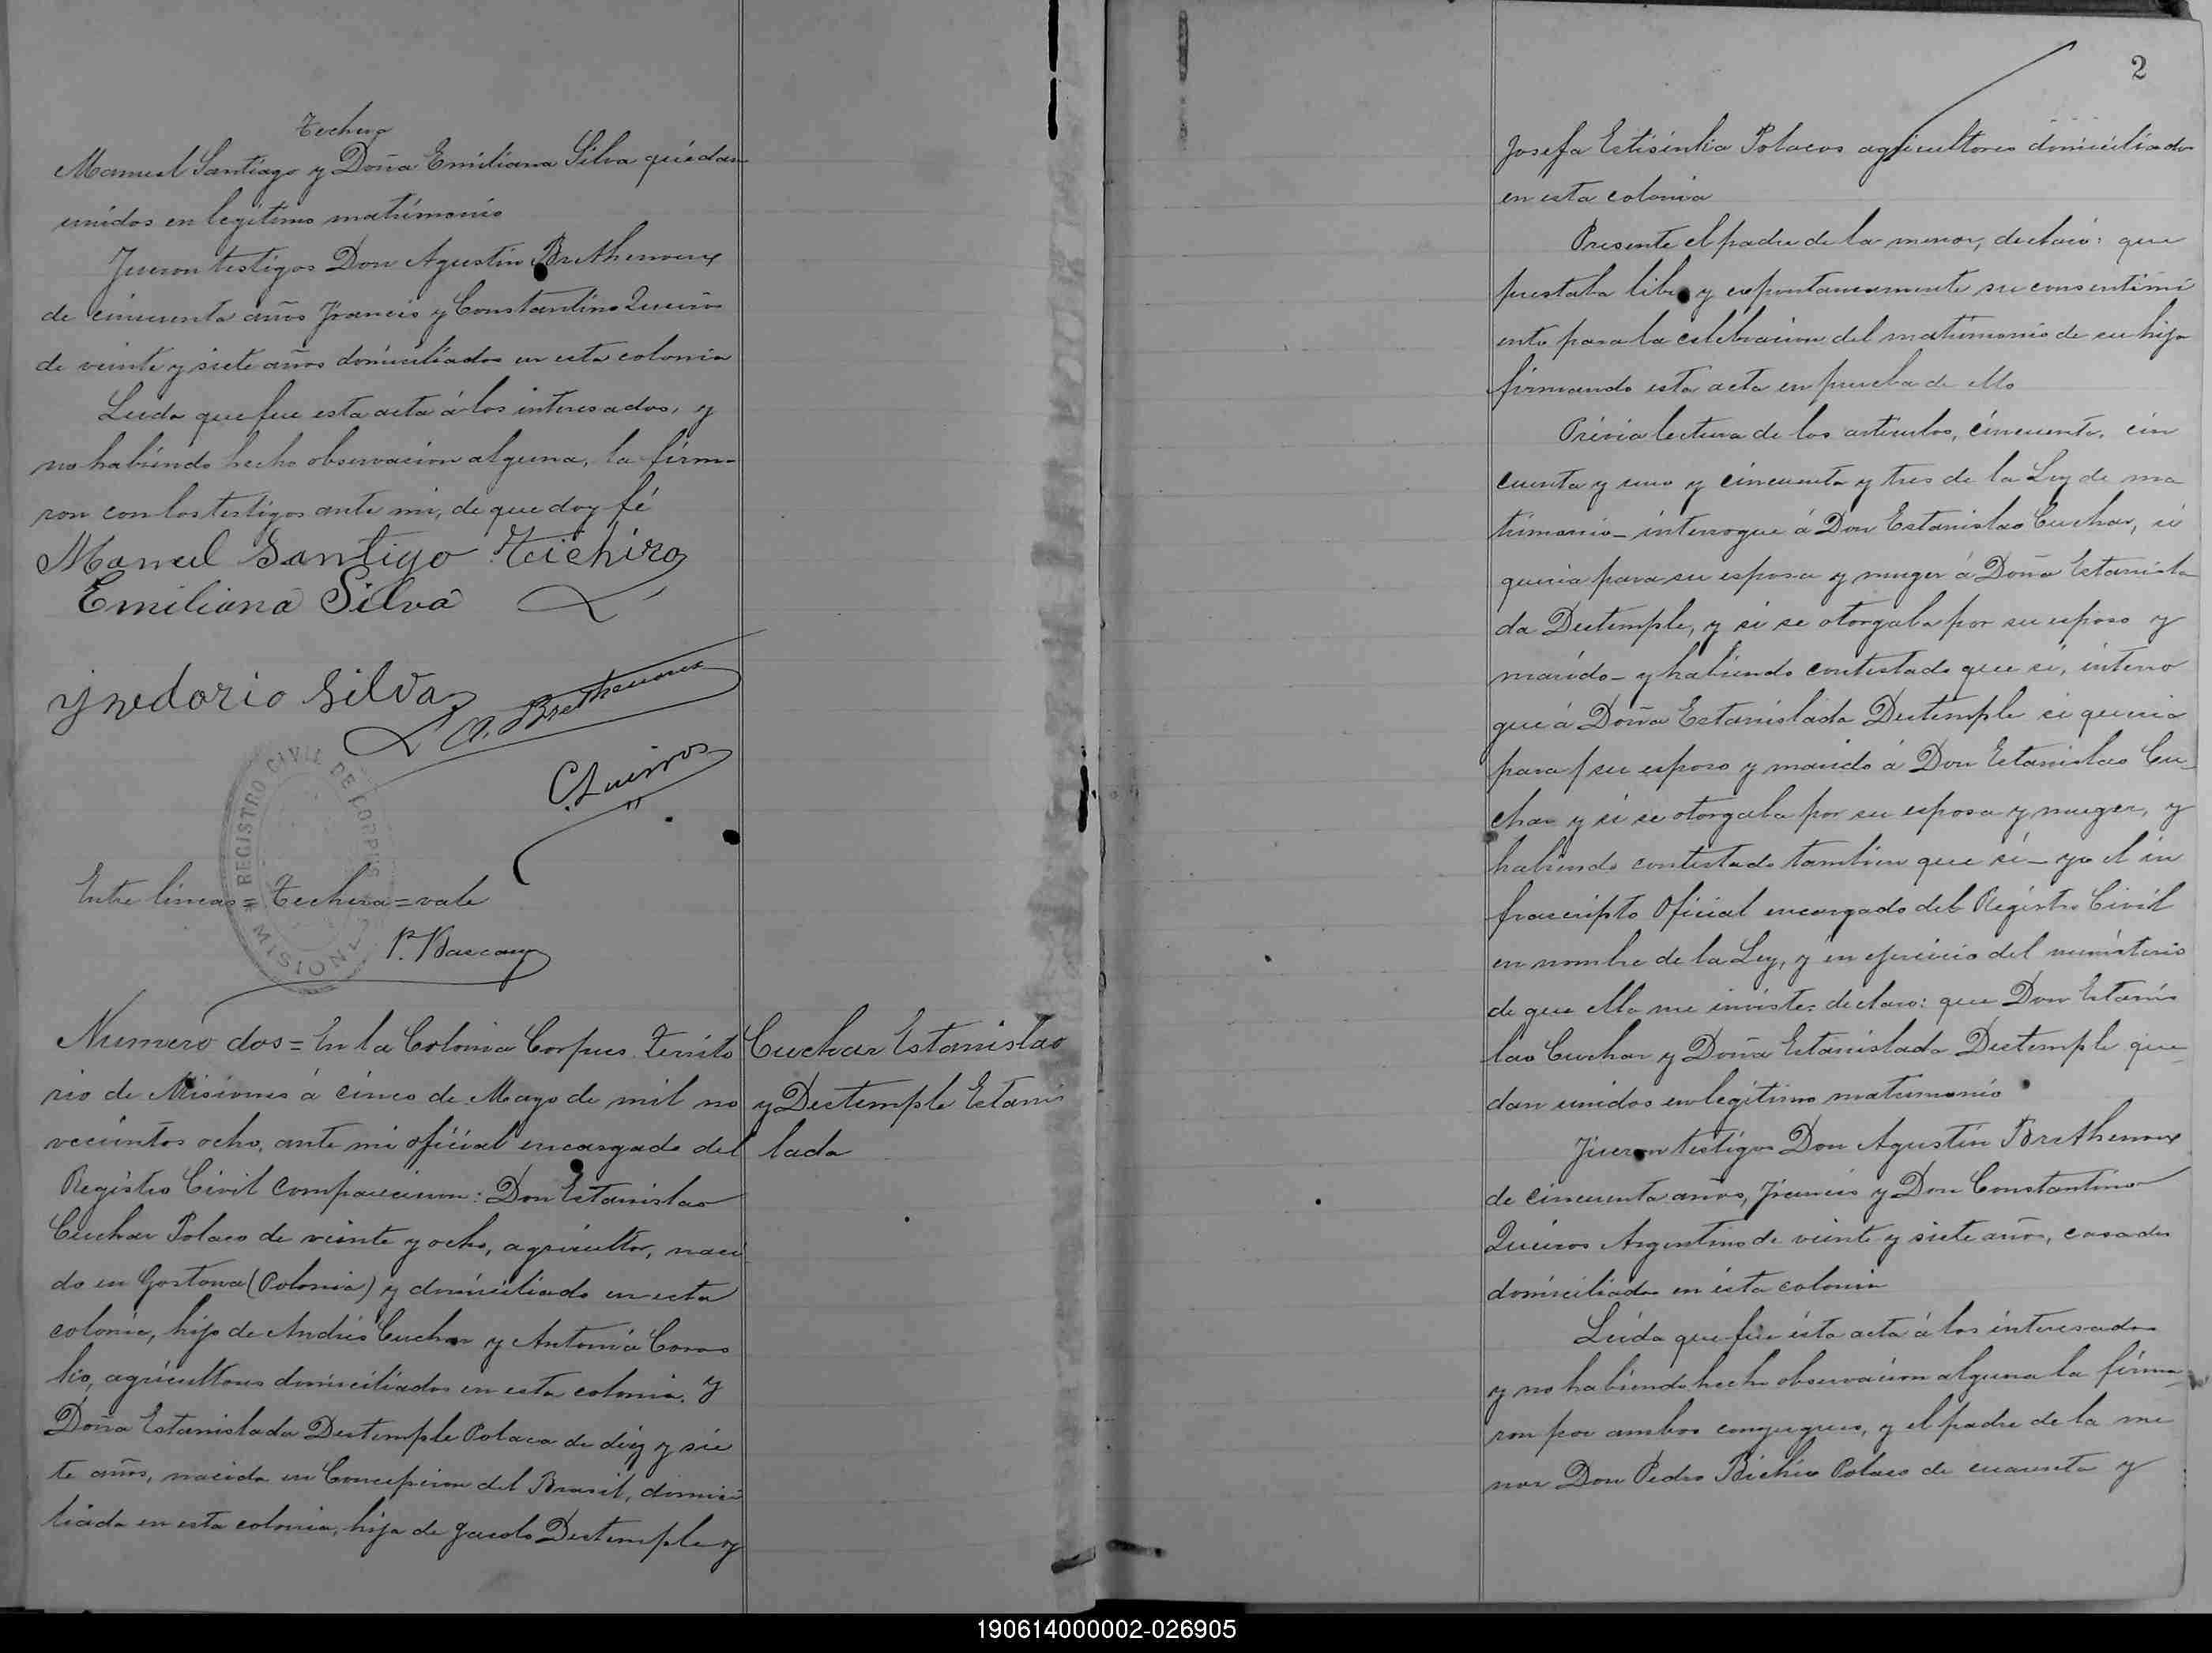 Techera
Manuel Santiago y Doña Emiliana Silva quedan
unidos en legítimo matrimonio
Fueron testigos Don Agustin Brethenoux
de cincuenta años Francis y Constantino Queiros
de veinte y siete años domiciliados en esta colonia
Leida que fue esta acta á los interesados, y
no habiendo hecho observacion alguna, la firma-
ron con los testigos ante mi, de que doy fé
Manuel Santigo Teichira
Emiliana Silva
Silva
A. Brethenoux
C. Queiros
REGISTRO CIVIL DE CORPUS
MISIONES
Entre lineas = Techera = vale
Numero dos = En la Colonia Corpus Territo
rio de Misiones á cinco de Mayo de mil no
vecientos ocho, ante mi oficial encargado del
Registro Civil comparecieron: Don Estanislao
Cuchar Polaco de veinte y ocho, agricultor, naci
do en Gostowa (Polonia) y domiciliado en esta
colonia, hijo de Andrés Cuchar y Antonia Coros
kio, agricultores domiciliados en esta colonia. y
Doña Estanislada Destemple Polaca de diez y sie
te años, nacida en Concepcion del Brasil, domici
liada en esta colonia, hija de Jacobo Destemple y
Cuchar Estanislao
y Destemple Estanis
lada
2
Josefa Estisinkia Polacos agricultores domiciliados
en esta colonia
Presente el padre de la menor, declaró: que
prestaba libre y expontaneamente su consentimi
ento para la celebracion del matrimonio de su hija
firmando esta acta en prueba de ello
Prévia lectura de los articulos, cincuenta, cin
cuenta y uno y cincuenta y tres de la Ley de ma
trimonio - interrogue á Don Estanislao Cuchar, si
queria para su esposa y muger á Doña Estanisla
da Destemple, y si se otorgaba por su esposo y
marido - y habiendo contestado que si, interro
gue á Doña Estanislada Destemple si queria
para su esposo y marido á Don Estanislao Cu-
char y si se otorgaba por su esposa y muger, y
habiendo contestado tambien que si - yo el in
frascripto Oficial encargado del Registro Civil
en nombre de la Ley, y en ejercicio del ministerio
de que ella me inviste: declaro: que Don Estanis
lao Cuchar y Doña Estanislada Destemple que-
dan unidos en legitimo matrimonio
Fueron testigos Don Agustin Brethenoux
de cincuenta años, Francis y Don Constantino
Queiros Argentino de veinte y siete años, casados
domiciliados en ésta colonia
Leida que fue ésta acta á los interesados
y no habiendo hecho observacion alguna la firma-
ron por ambos conyugues, y el padre de la me
nor Don Pedro Bichiw Polaco de cuarenta y
190614000002-026905